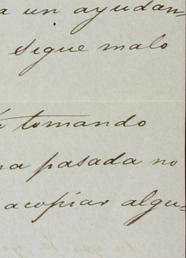 a un ayudan-
sigue malo
tomando
na pasada no
acopiar algu-